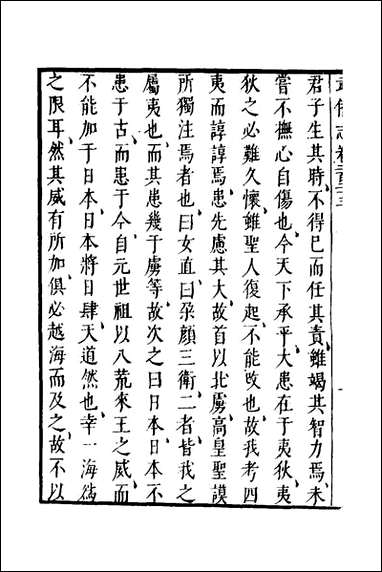 武備志卷二百二十三
君子生其時不得已而任其責雖竭其智力焉未
嘗不撫心自傷也今天下承平大患在于夷狄夷
狄之必難久懷雖聖人復起不能改也故我考四
夷而諄諄焉患先慮其大故首以北虜高皇聖謨
所獨注焉者也曰女直曰朶顔三衛二者皆我之
屬夷也而其患幾于虜等故次之曰日本日本不
患于古而患于今自元世祖以八荒來王之威而
不能加于日本日本將日肆天道然也幸一海爲
之限耳然其威有所加俱必越海而及之故不以